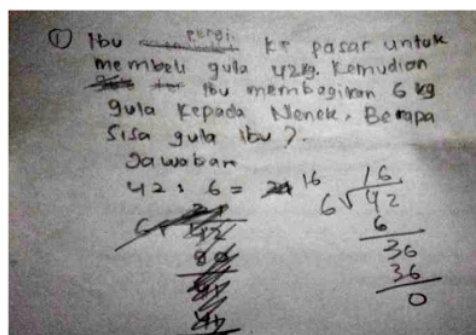 ① Ibu pergi ke pasar untuk
membeli gula 42 kg. Kemudian
Ibu membagikan 6 kg
gula kepada Nenek. Berapa
sisa gula ibu ?
Jawaban
42 : 6 = 16
16
6√42
6
36
36
0